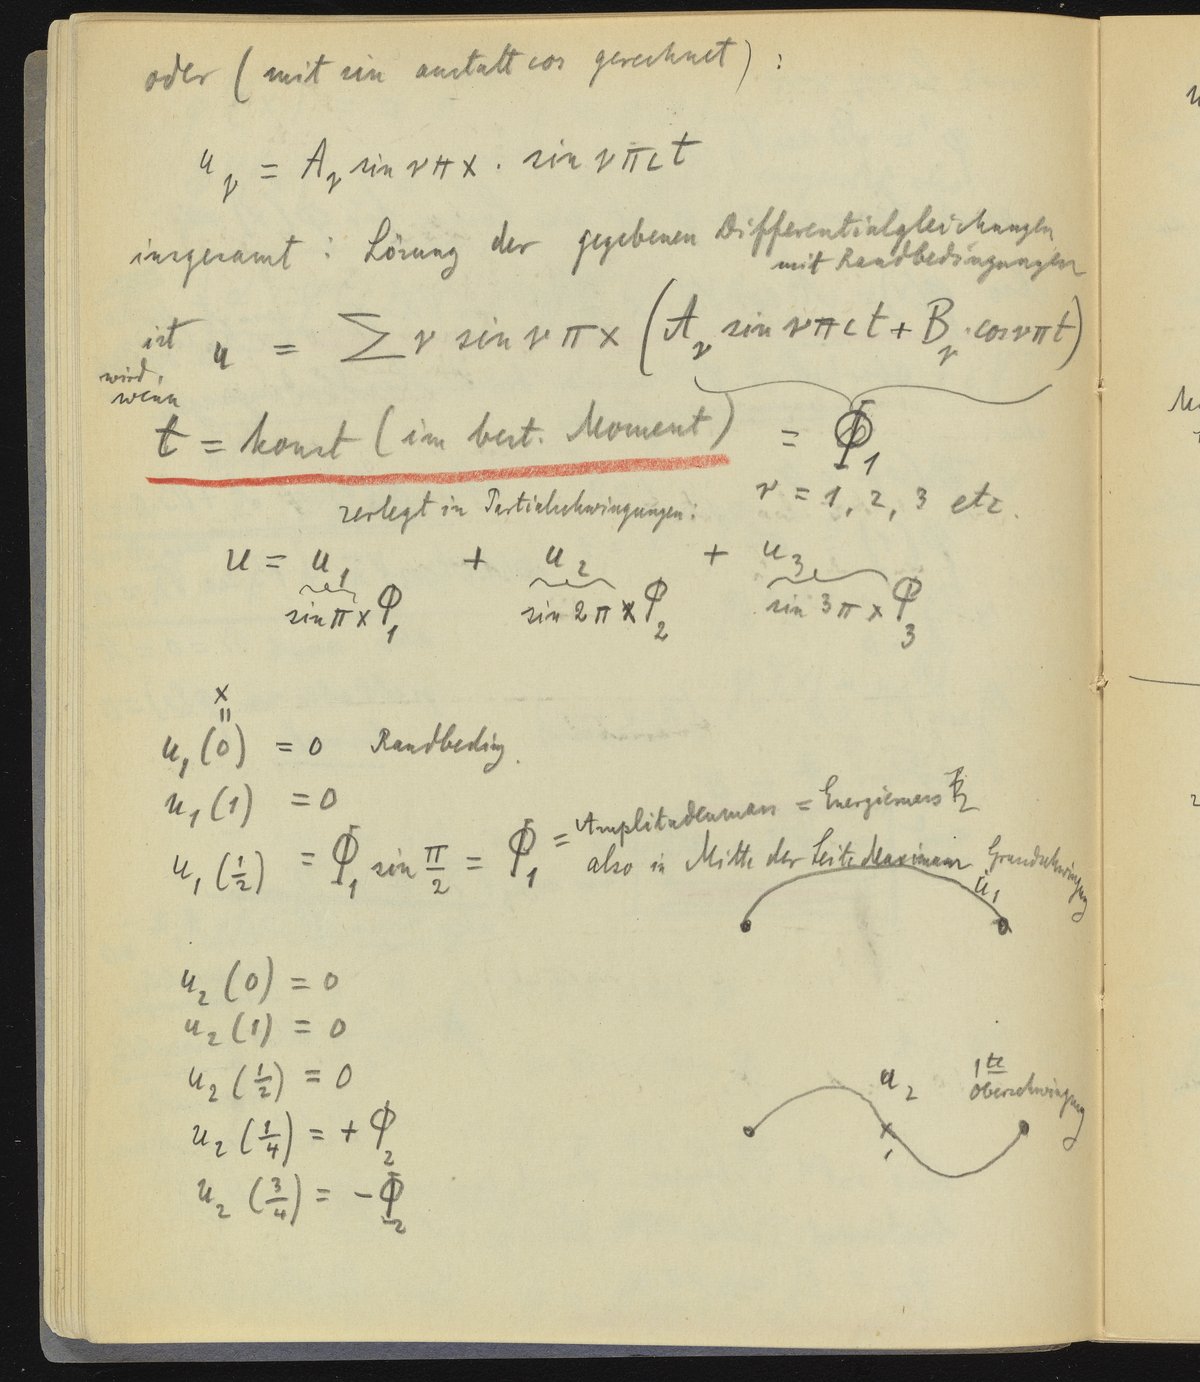 oder (mit sin anstatt cos gerechnet):
u_ν = A_ν sin νπx · sin νπct
insgesamt: Lösung der gegebenen Differentialgleichungen
mit Randbedingungen
ist u = Σν sin νπx (A_ν sin νπct + B_ν · cos νπt)
wird,
wenn
t = konst (im best. Moment) = Φ₁
ν = 1, 2, 3 etc.
zerlegt in Partialschwingungen:
u = u₁ + u₂ + u₃
sin πx Φ₁ sin 2πx Φ₂ sin 3πx Φ₃
x
=
u₁(0) = 0 Randbeding.
u₁(1) = 0
u₁(1/2) = Φ₁ sin π/2 = Φ₁ = Amplitudenmass = Energiemass
also in Mitte der Seite Maximum Grundschwingung
u₁
u₂(0) = 0
u₂(1) = 0
u₂(1/2) = 0
u₂(1/4) = + Φ₂
u₂(3/4) = - Φ₂
u₂ 1te
Oberschwingung